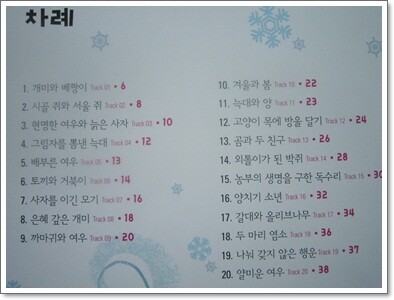 차례
1. 개미와 베짱이 Track 01 • 6
2. 시골 쥐와 서울 쥐 Track 02 • 8
3. 현명한 여우와 늙은 사자 Track 03 • 10
4. 그림자를 뽐낸 늑대 Track 04 • 12
5. 배부른 여우 Track 05 • 13
6. 토끼와 거북이 Track 06 • 14
7. 사자를 이긴 모기 Track 07 • 16
8. 은혜 갚은 개미 Track 08 • 18
9. 까마귀와 여우 Track 09 • 20
10. 겨울과 봄 Track 10 • 22
11. 늑대와 양 Track 11 • 23
12. 고양이 목에 방울 달기 Track 12 • 24
13. 곰과 두 친구 Track 13 • 26
14. 외톨이가 된 박쥐 Track 14 • 28
15. 농부의 생명을 구한 독수리 Track 15 • 30
16. 양치기 소년 Track 16 • 32
17. 갈대와 올리브나무 Track 17 • 34
18. 두 마리 염소 Track 18 • 36
19. 나눠 갖지 않은 행운 Track 19 • 37
20. 얄미운 여우 Track 20 • 38